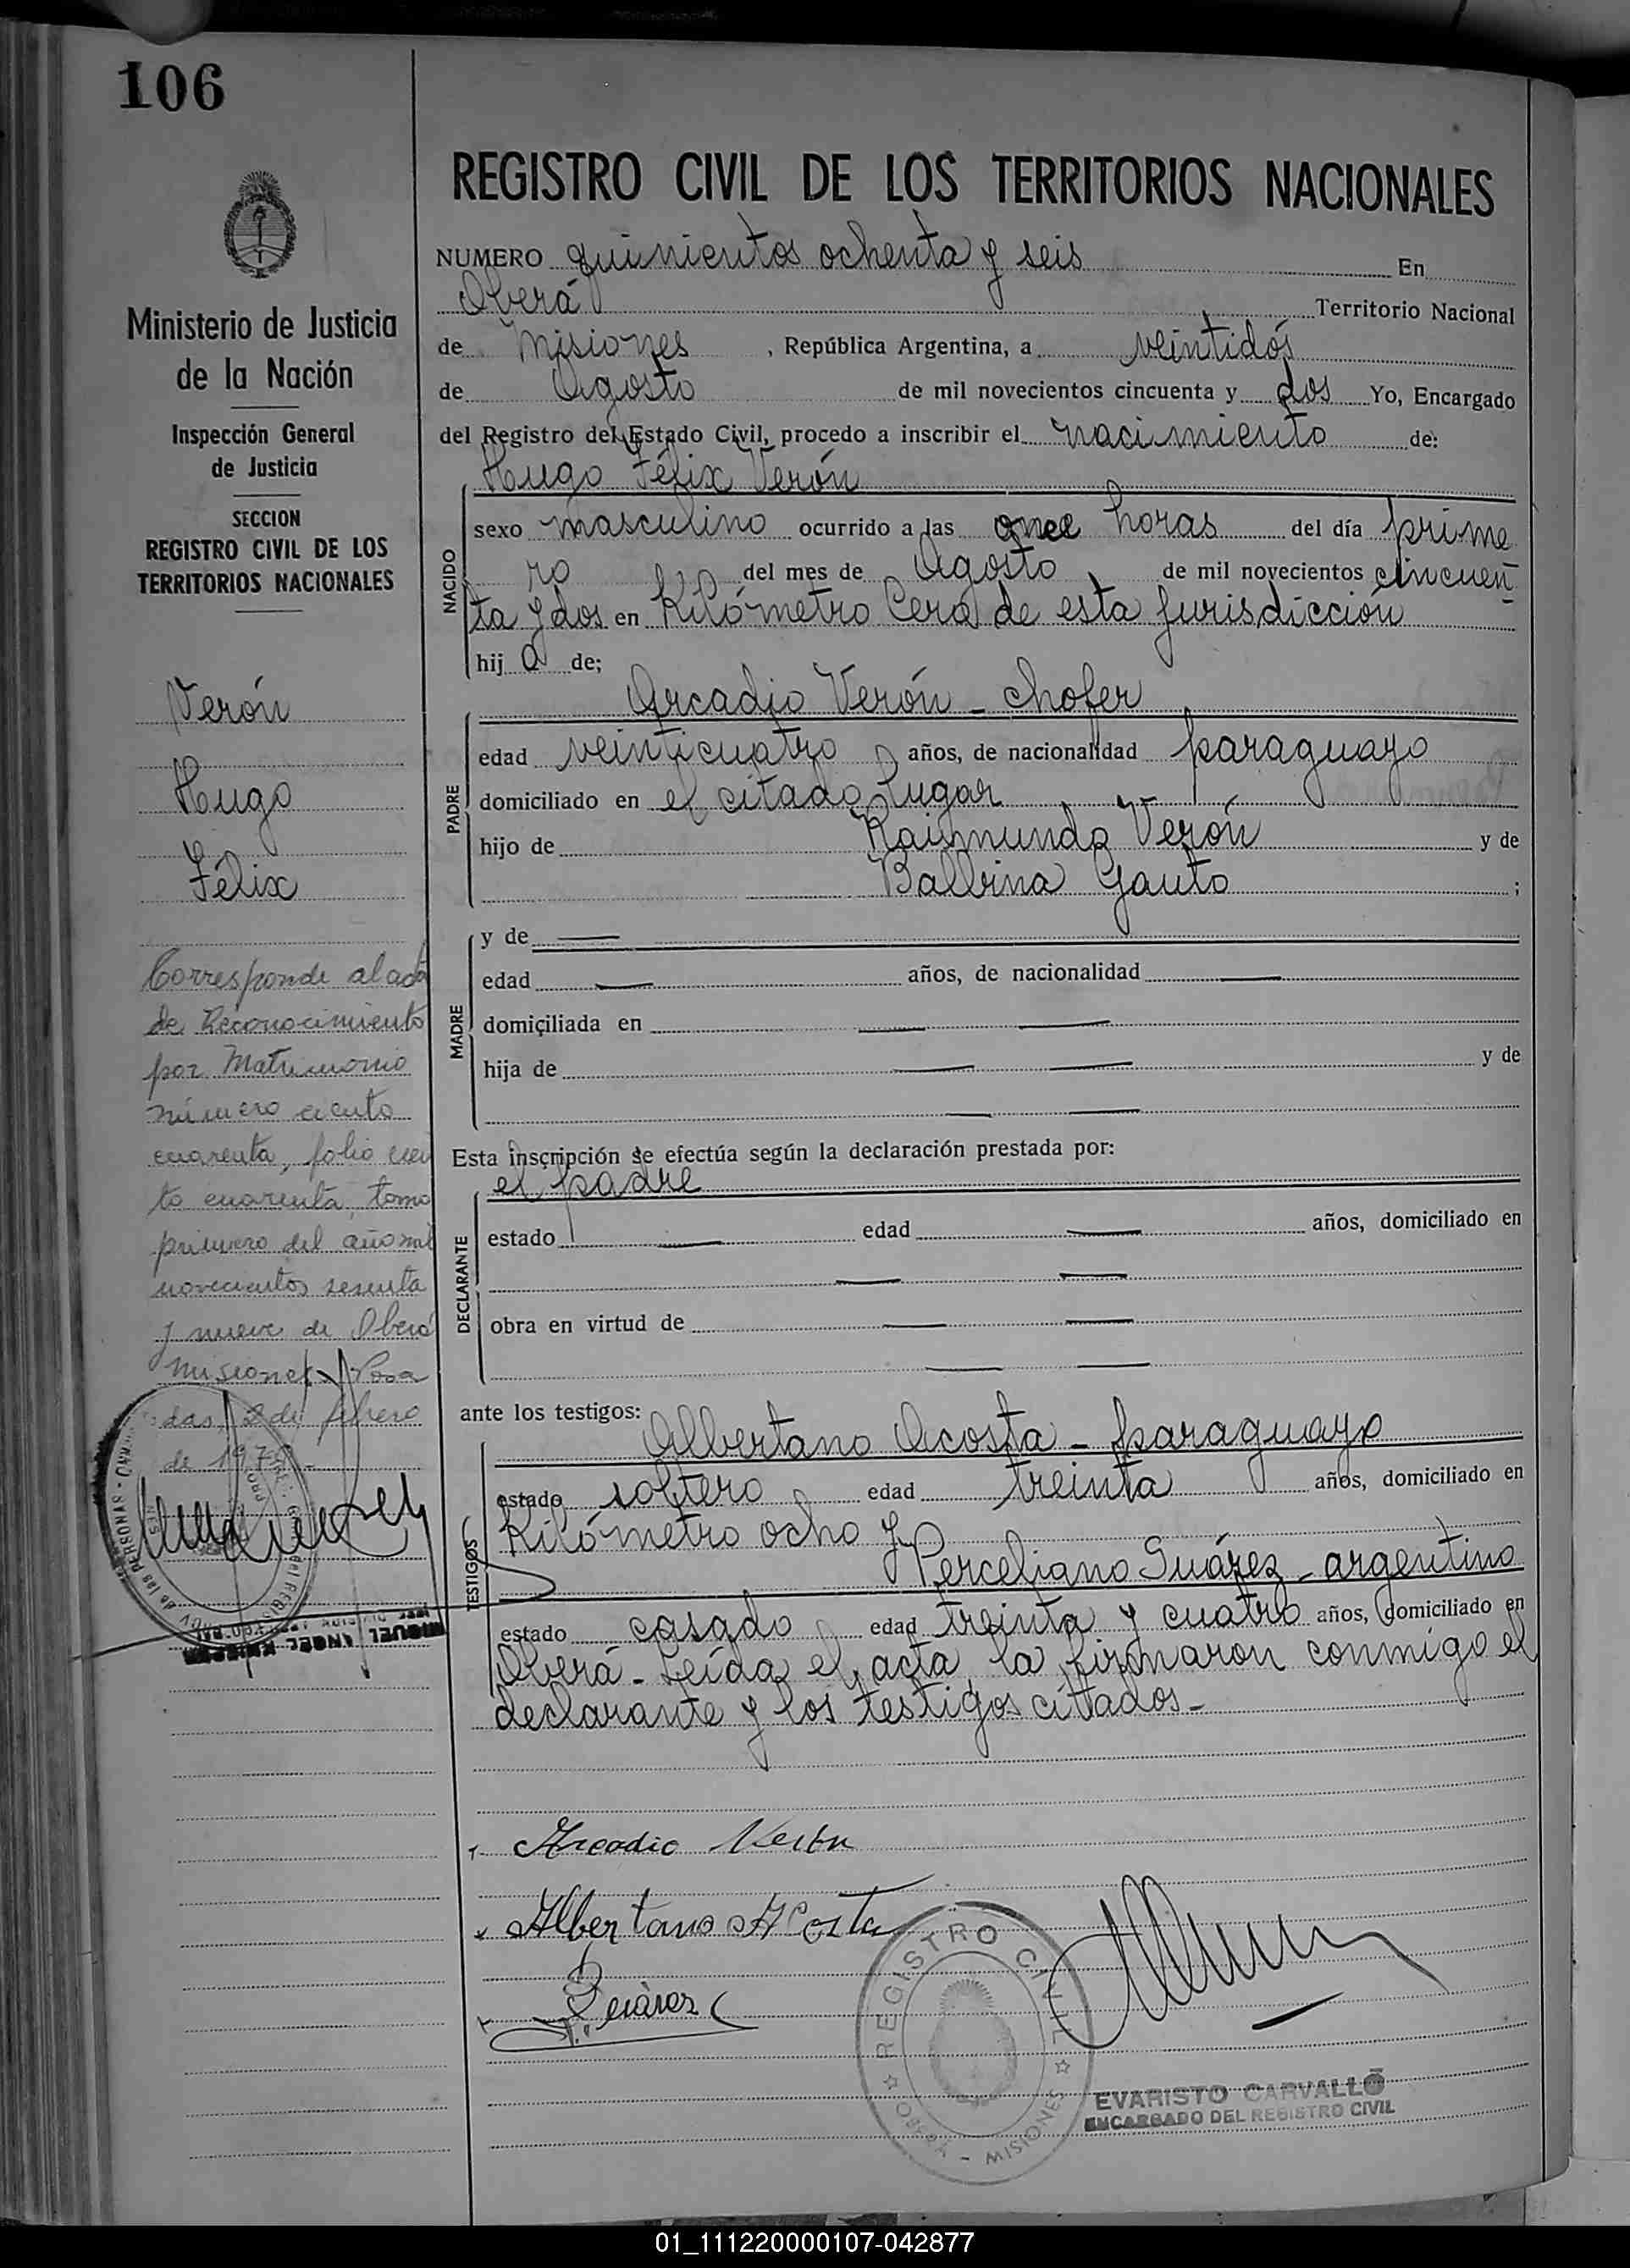 106
Ministerio de Justicia
de la Nación
Inspección General
de Justicia
SECCION
REGISTRO CIVIL DE LOS
TERRITORIOS NACIONALES
Verón
Hugo
Félix
Corresponde al acta
de Reconocimiento
por Matrimonio
número ciento
cuarenta, folio cien
to cuarenta, tomo
primero del año mil
novecientos sesenta
y nueve de Oberá
Misiones Posa
das, de febrero
de 197
MIGUEL ANGEL
REGISTRO CIVIL DE LOS TERRITORIOS NACIONALES
NUMERO quinientos ochenta y seis En
Oberá Territorio Nacional
de Misiones, República Argentina, a veintidós
de Agosto de mil novecientos cincuenta y dos Yo, Encargado
del Registro del Estado Civil, procedo a inscribir el nacimiento de:
Hugo Félix Verón
NACIDO
sexo masculino ocurrido a las once horas del día prime
ro del mes de Agosto de mil novecientos cincuen
ta y dos en Kilómetro Cero de esta jurisdicción
hij o de;
Arcadio Verón - chofer
PADRE
edad veinticuatro años, de nacionalidad paraguayo
domiciliado en el citado lugar
hijo de Raimundo Verón y de
Balbina Gauto ;
MADRE
y de —
edad — años, de nacionalidad —
domiciliada en — —
hija de — — y de
— —
Esta inscripción se efectúa según la declaración prestada por:
el padre
DECLARANTE
estado — edad — años, domiciliado en
— —
obra en virtud de — —
— —
ante los testigos:
Albertano Acosta - paraguayo
TESTIGOS
estado soltero edad treinta años, domiciliado en
Kilómetro ocho y
Perceliano Suárez - argentino
estado casado edad treinta y cuatro años, domiciliado en
Oberá - Leída el acta la firmaron conmigo el
declarante y los testigos citados -
Arcadio Verón
Albertano Acosta
P. Suárez
REGISTRO CIVIL
OBERA - MISIONES
EVARISTO CARVALLO
ENCARGADO DEL REGISTRO CIVIL
01_111220000107-042877